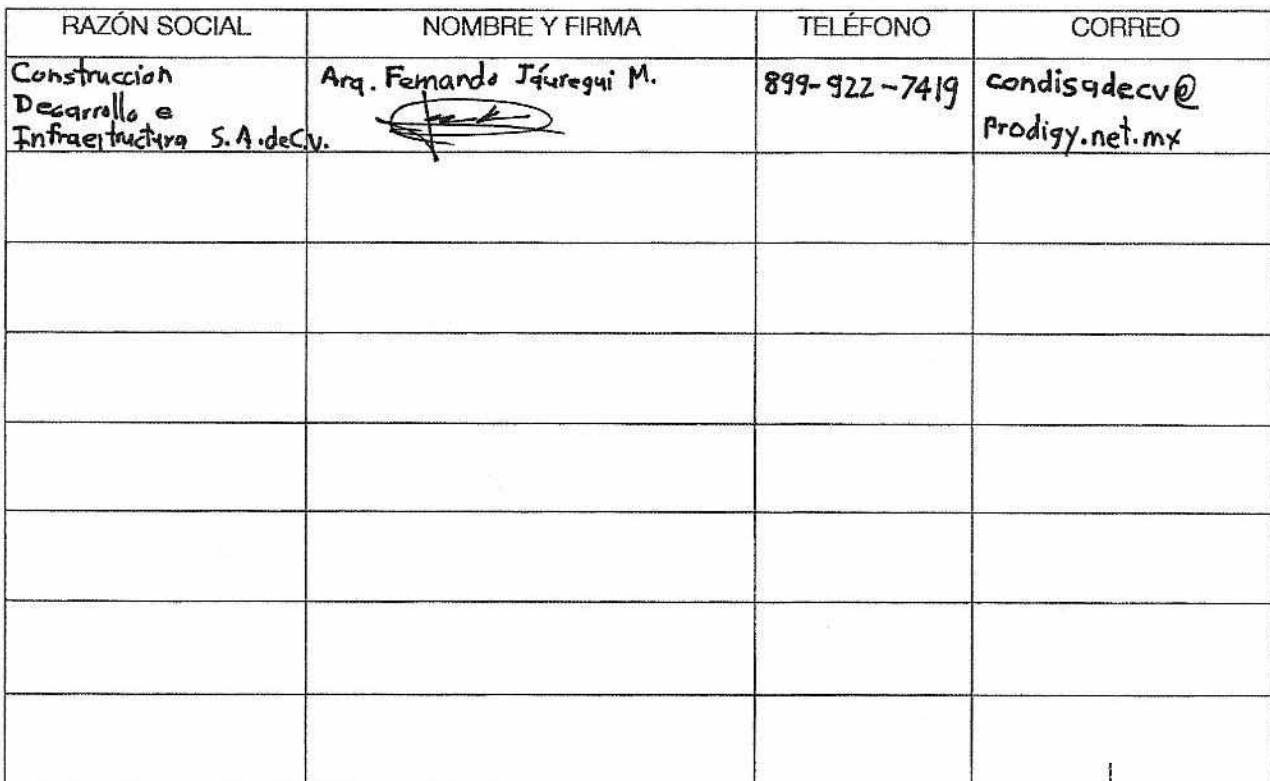 RAZÓN SOCIAL NOMBRE Y FIRMA TELÉFONO CORREO
Construccion
Desarrollo e
Infraestructura S.A.deC.V.
Arq. Fernando Jáuregui M.
899-922-7419
condisadecv@
Prodigy.net.mx